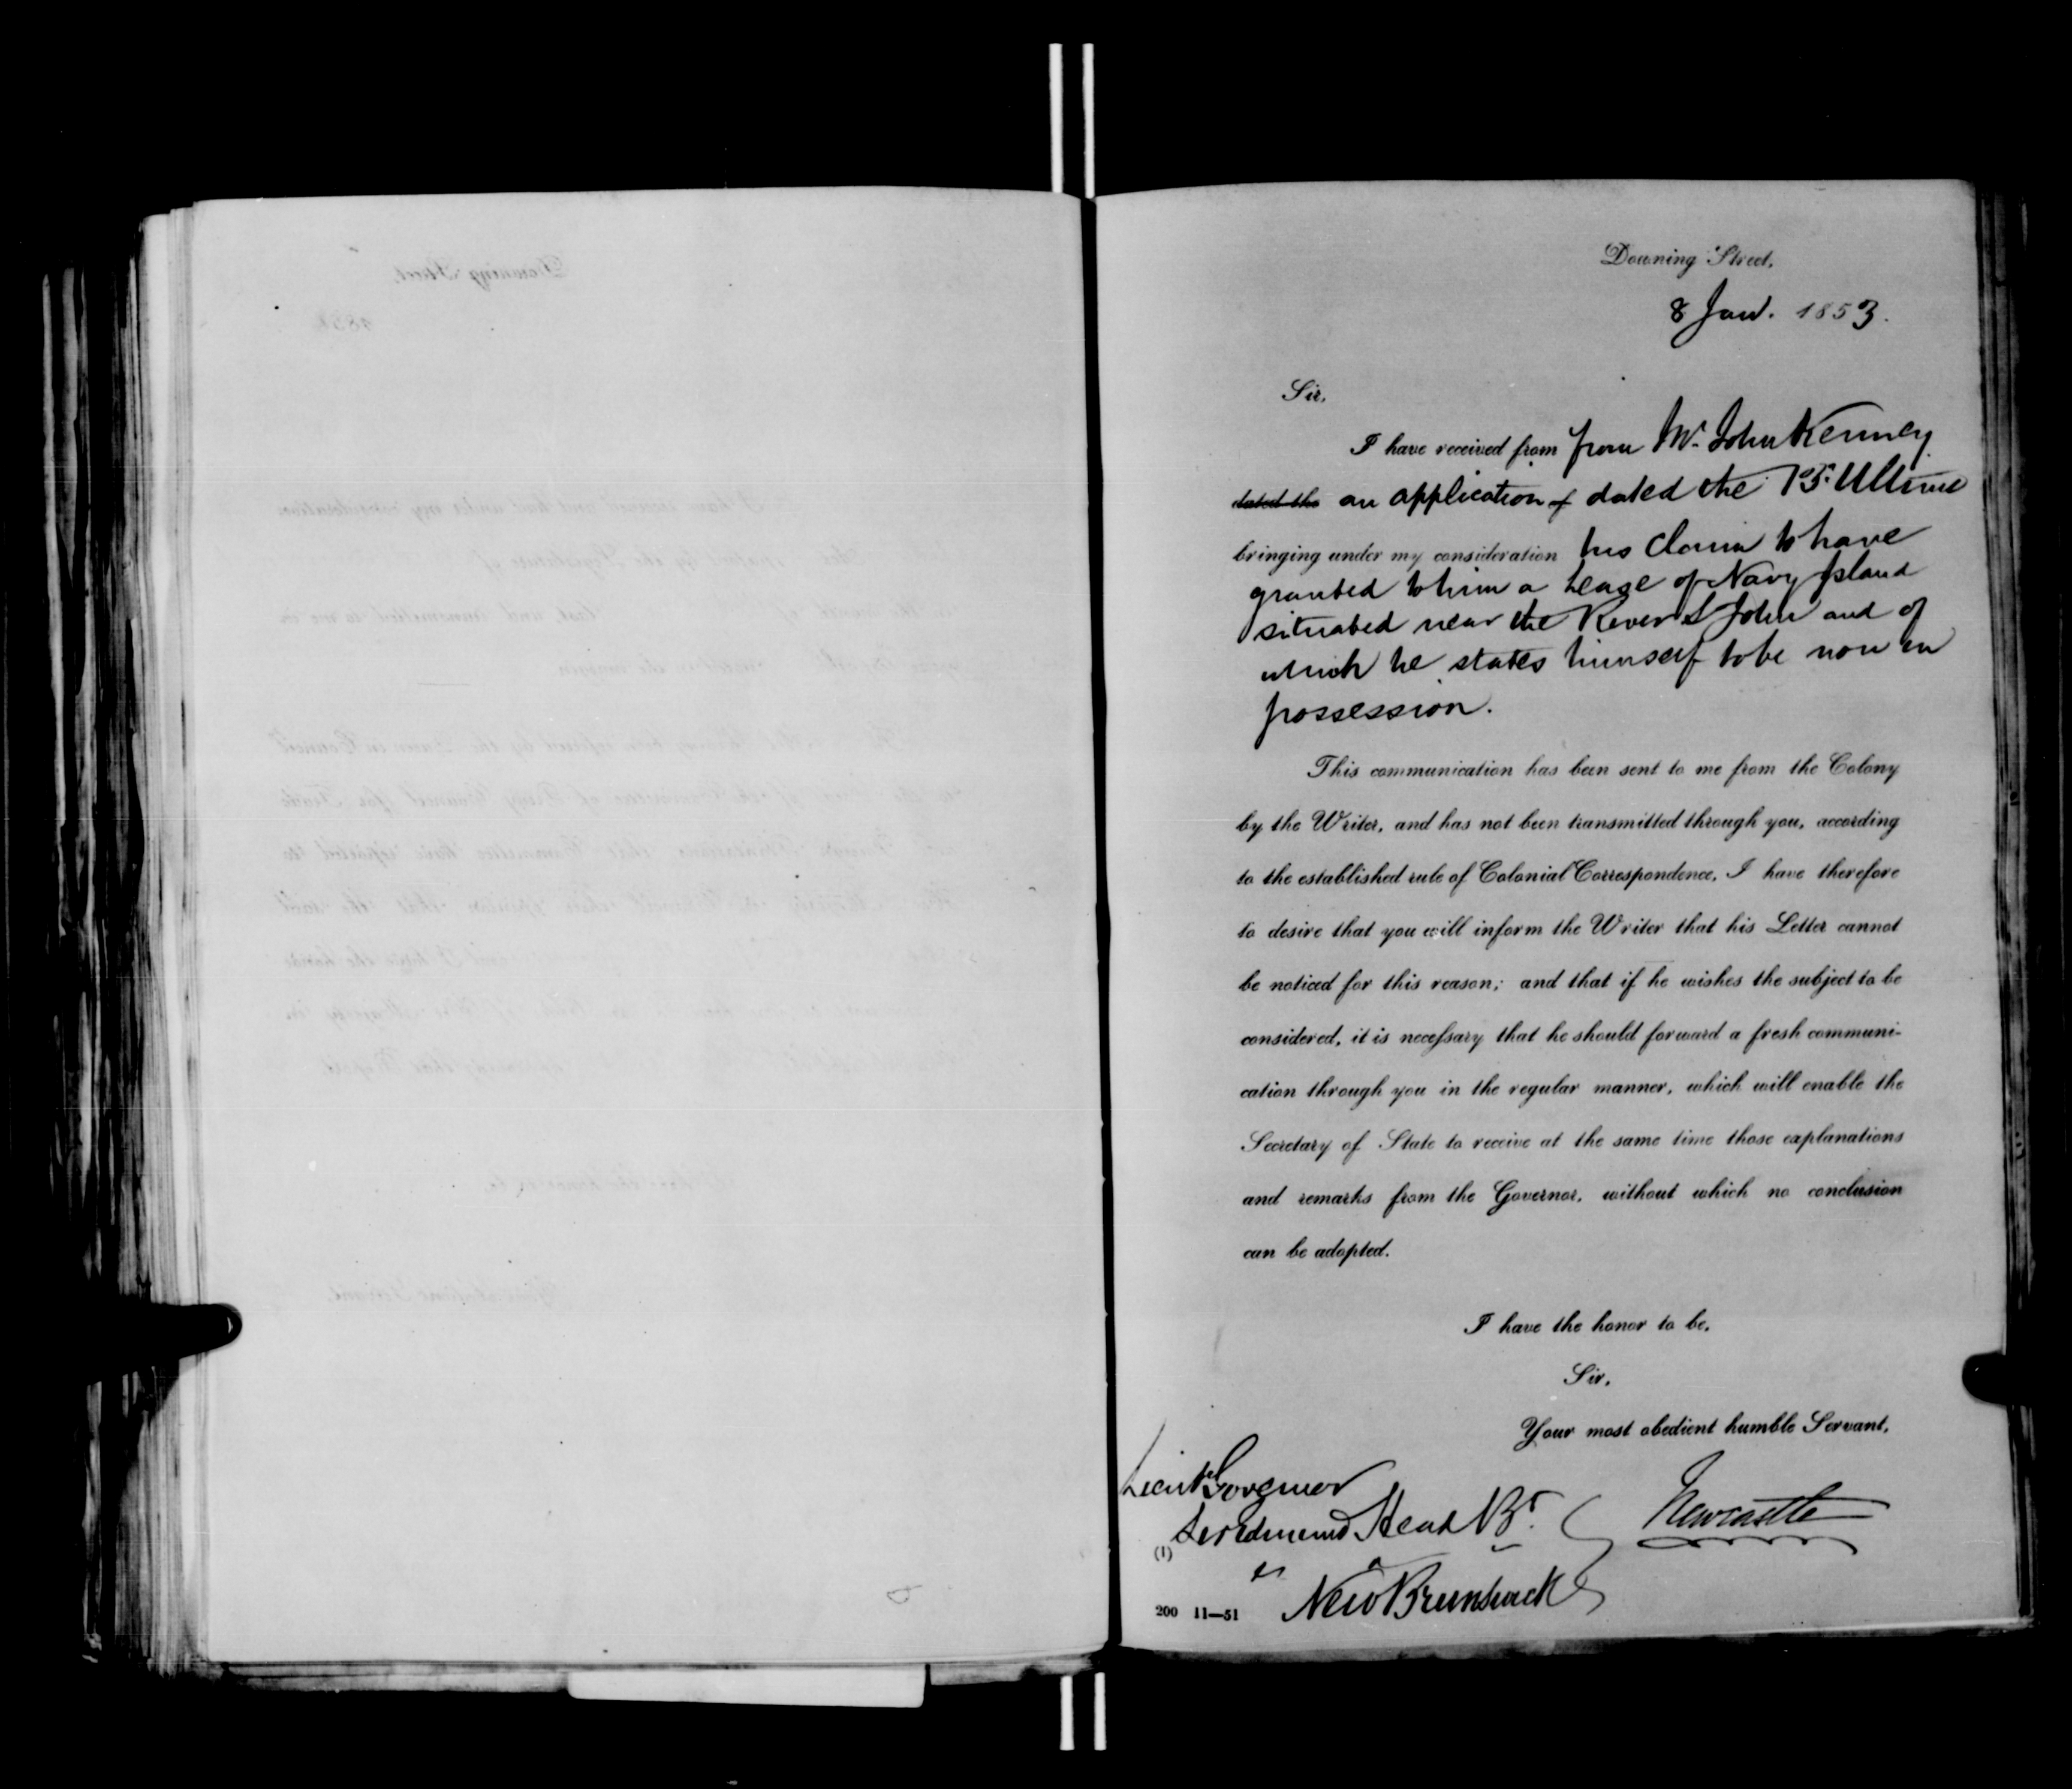 Downing Street,
8 Jany. 1853.
Sir,
I have received from from Mr. John Kenney
dated the an application dated the 15. Ultimo
bringing under my consideration his claim to have
granted to him a Lease of Navy Island
situated near the River St John and of
which he states himself to be now in
possession.
This communication has been sent to me from the Colony
by the Writer, and has not been transmitted through you, according
to the established rule of Colonial Correspondence, I have therefore
to desire that you will inform the Writer that his Letter cannot
be noticed for this reason; and that if he wishes the subject to be
considered, it is necessary that he should forward a fresh communi-
cation through you in the regular manner, which will enable the
Secretary of State to receive at the same time those explanations
and remarks from the Governor, without which no conclusion
can be adopted.
I have the honor to be,
Sir,
Your most obedient humble Servant,
Newcastle
Lieut Governor
Sir Edmund Head Bt.
(1)
New Brunswick
200 11—51